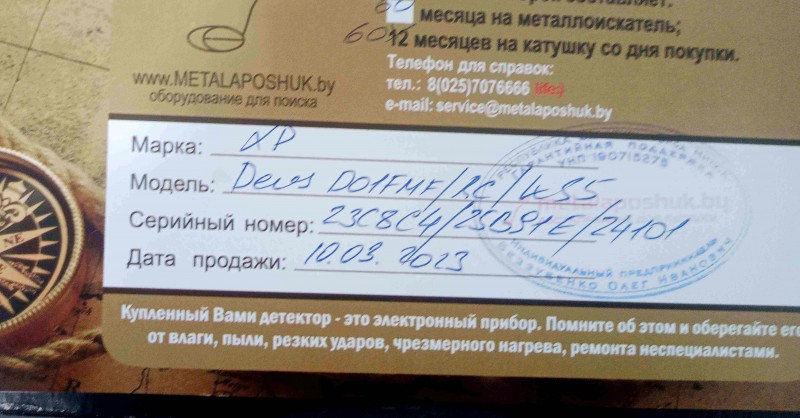 60 месяца на металлоискатель;
12 месяцев на катушку со дня покупки.
Телефон для справок:
www.METALAPOSHUK.by
тел.: 8(025)7076666 life:)
оборудование для поиска
e-mail: service@metalaposhuk.by
Марка: XP
Модель: Deus D01FMF/RC/WS5
Серийный номер: 23C8C4/25B91E/24101
Дата продажи: 10.03.2023
ГАРАНТИЙНАЯ ПОДДЕРЖКА
УНП 190715275
metalaposhuk.by
ИНДИВИДУАЛЬНЫЙ ПРЕДПРИНИМАТЕЛЬ
ОЛЕГ ИВАНОВИЧ
Купленный Вами детектор - это электронный прибор. Помните об этом и оберегайте его
от влаги, пыли, резких ударов, чрезмерного нагрева, ремонта неспециалистами.